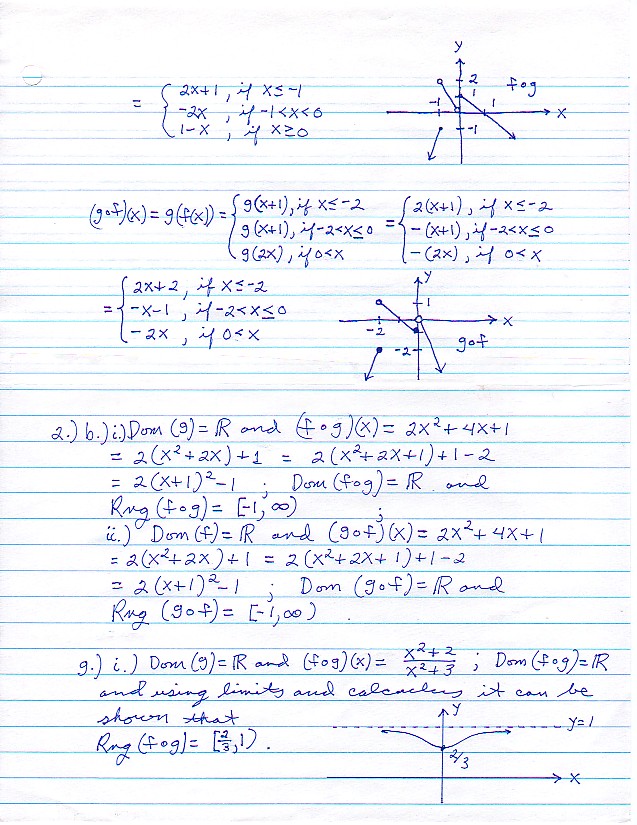 = { 2x+1 , if x ≤ -1
-2x , if -1<x<0
1-x , if x ≥ 0
y
2
1
-1
1
-1
x
fog
(g∘f)(x) = g(f(x)) = { g(x+1), if x ≤ -2 = { 2(x+1) , if x ≤ -2
g(x+1), if -2<x≤0 -(x+1) , if -2<x≤0
g(2x) , if 0<x -(2x) , if 0<x
= { 2x+2 , if x ≤ -2
-x-1 , if -2<x≤0
-2x , if 0<x
y
1
-2
-2
x
gof
2.) b.) i.) Dom (g) = ℝ and (f∘g)(x) = 2x²+4x+1
= 2(x²+2x)+1 = 2(x²+2x+1)+1-2
= 2(x+1)²-1 ; Dom (f∘g) = ℝ and
Rng (f∘g) = [-1,∞) ;
ii.) Dom (f) = ℝ and (g∘f)(x) = 2x²+4x+1
= 2(x²+2x)+1 = 2(x²+2x+1)+1-2
= 2(x+1)²-1 ; Dom (g∘f) = ℝ and
Rng (g∘f) = [-1,∞) .
g.) i.) Dom (g) = ℝ and (f∘g)(x) = (x²+2)/(x²+3) ; Dom (f∘g) = ℝ
and using limits and calculus it can be
shown that
Rng (f∘g) = [2/3, 1) .
y
y=1
2/3
x